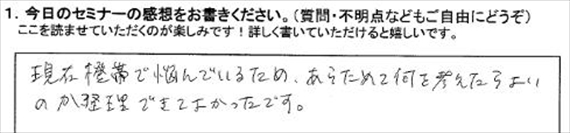 1. 今日のセミナーの感想をお書きください。(質問・不明点などもご自由にどうぞ)
ここを読ませていただくのが楽しみです！詳しく書いていただけると嬉しいです。
現在携帯で悩んでいるため、あらためて何を考えたらよい
のか整理できてよかったです。